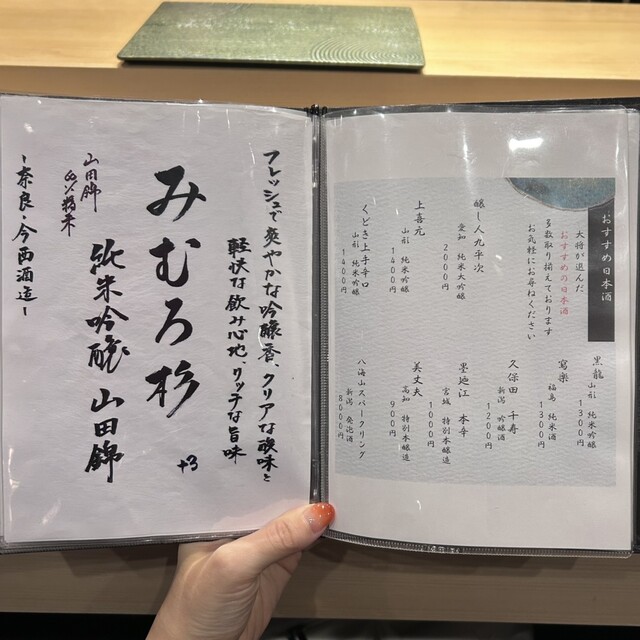 フレッシュで爽やかな吟醸香、クリアな酸味と
軽快な飲み心地、リッチな旨味
みむろ杉
+3
純米吟醸 山田錦
山田錦
60%精米
~奈良・今西酒造~
おすすめ日本酒
大将が選んだ
おすすめの日本酒
多数取り揃えております
お気軽にお尋ねください
醸し人九平次
愛知 純米大吟醸
2000円
上喜元
山形 純米吟醸
1400円
くどき上手辛口
山形 純米吟醸
1400円
黒龍
山形 純米吟醸
1300円
寫楽
福島 純米酒
1300円
久保田 千寿
新潟 吟醸酒
1200円
墨廼江 本辛
宮城 特別本醸造
1000円
美丈夫
高知 特別本醸造
900円
八海山スパークリング
新潟 発泡酒
8000円